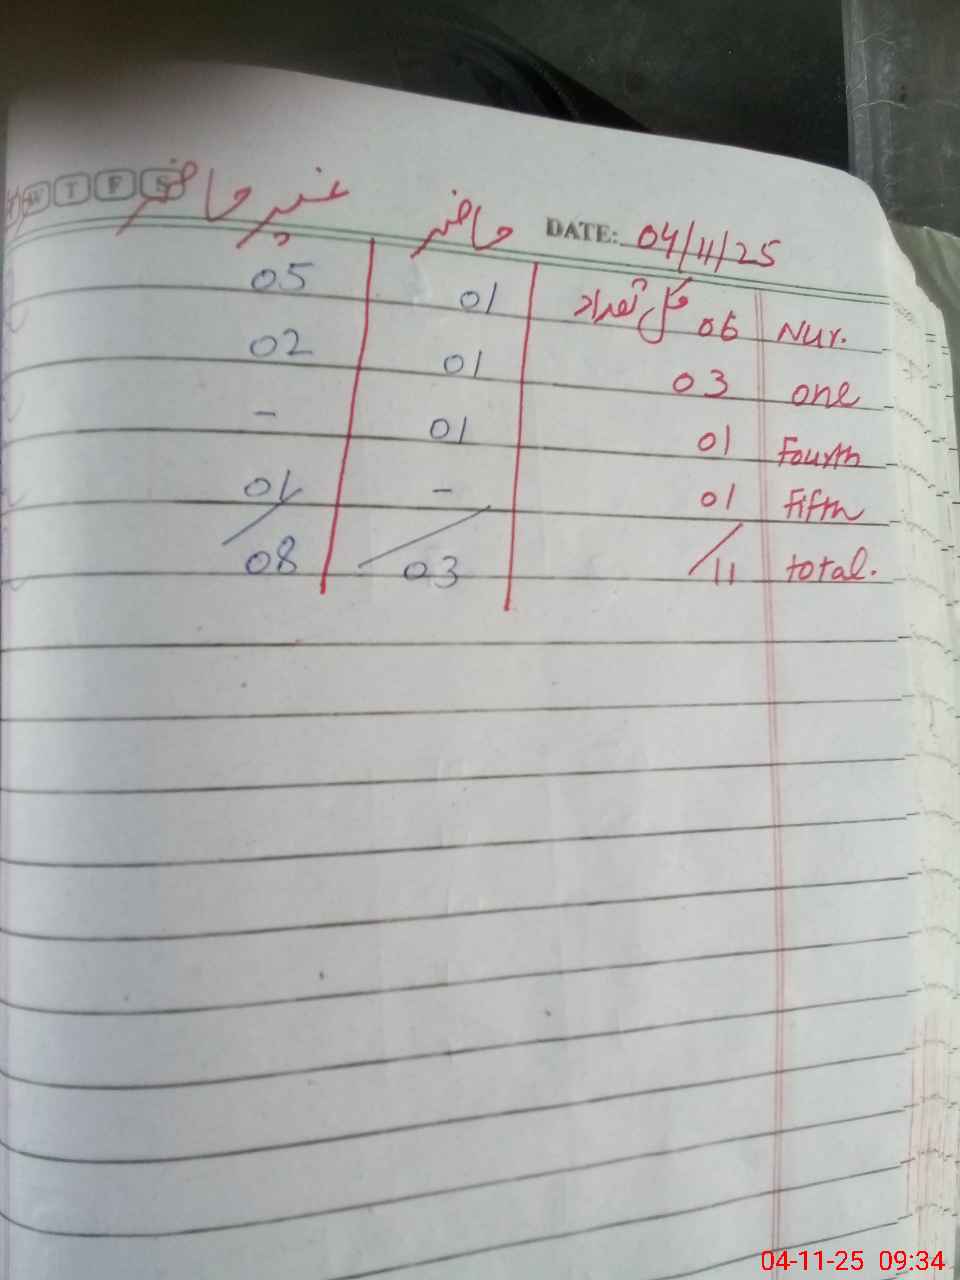 W T F S
DATE: 04/11/25
حاضر غیر حاضر
Nur. 06 کل تعداد 01 05
one 03 01 02
Fourth 01 01 -
Fifth 01 - 01
total. 11 03 08
04-11-25 09:34